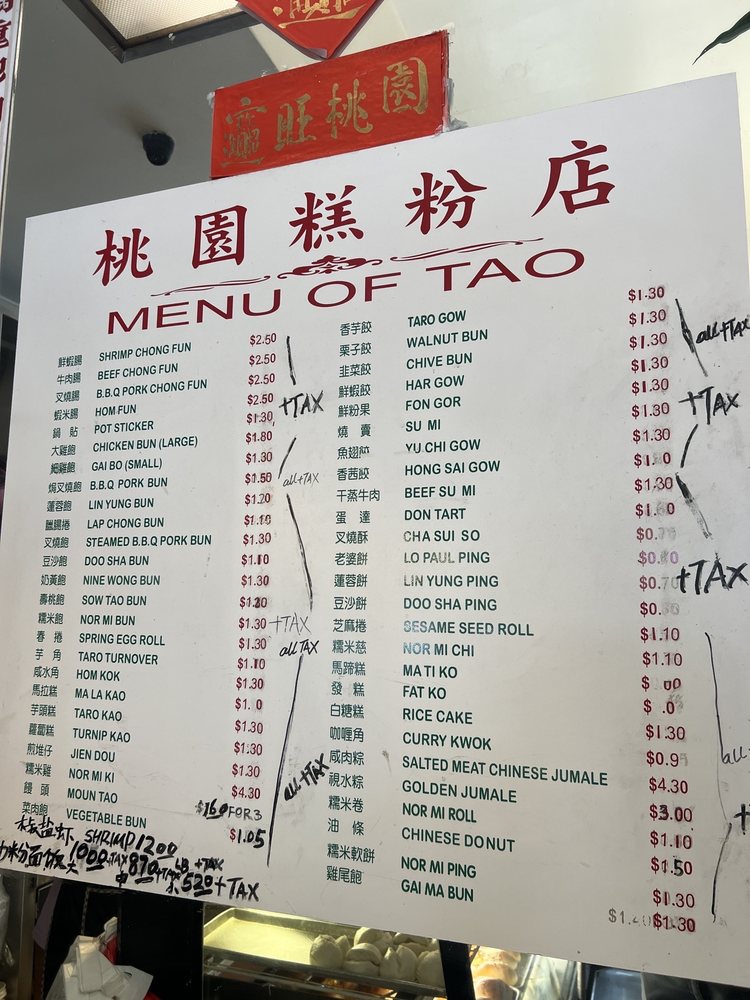 旺桃園
桃園糕粉店
MENU OF TAO
鮮蝦腸 SHRIMP CHONG FUN $2.50
牛肉腸 BEEF CHONG FUN $2.50
叉燒腸 B.B.Q PORK CHONG FUN $2.50
蝦米腸 HOM FUN $2.50
鍋貼 POT STICKER $1.30
大雞飽 CHICKEN BUN (LARGE) $1.80
細雞飽 GAI BO (SMALL) $1.30
焗叉燒飽 B.B.Q PORK BUN $1.50
蓮蓉飽 LIN YUNG BUN $1.20
臘腸捲 LAP CHONG BUN $1.10
叉燒飽 STEAMED B.B.Q PORK BUN $1.30
豆沙飽 DOO SHA BUN $1.10
奶黃飽 NINE WONG BUN $1.30
壽桃飽 SOW TAO BUN $1.20
糯米飽 NOR MI BUN $1.30
春捲 SPRING EGG ROLL $1.30
芋角 TARO TURNOVER $1.10
咸水角 HOM KOK $1.30
馬拉糕 MA LA KAO $1. 0
芋頭糕 TARO KAO $1.30
蘿蔔糕 TURNIP KAO $1.30
煎堆仔 JIEN DOU $1.30
糯米雞 NOR MI KI $4.30
饅頭 MOUN TAO $1.60 FOR 3
菜肉飽 VEGETABLE BUN $1.05
+TAX
all+TAX
+TAX
all TAX
all+TAX
椒盐虾 SHRIMP 12.00
10.00+TAX 8.70+TAX
5.20+TAX
香芋餃 TARO GOW $1.30
栗子餃 WALNUT BUN $1.30
韭菜餃 CHIVE BUN $1.30
鮮蝦餃 HAR GOW $1.30
鮮粉果 FON GOR $1.30
燒賣 SU MI $1.30
魚翅餃 YU CHI GOW $1.30
香茜餃 HONG SAI GOW $1. 0
干蒸牛肉 BEEF SU MI $1.30
蛋達 DON TART $1.60
叉燒酥 CHA SUI SO $0.7
老婆餅 LO PAUL PING $0.70
蓮蓉餅 LIN YUNG PING $0.70
豆沙餅 DOO SHA PING $0.
芝麻捲 SESAME SEED ROLL $1.10
糯米慈 NOR MI CHI $1.10
馬蹄糕 MA TI KO $ .00
發糕 FAT KO $ .0
白糖糕 RICE CAKE $1.30
咖喱角 CURRY KWOK $0.95
咸肉粽 SALTED MEAT CHINESE JUMALE $4.30
視水粽 GOLDEN JUMALE $3.00
糯米卷 NOR MI ROLL $1.10
油條 CHINESE DONUT $1.50
糯米軟餅 NOR MI PING $1.30
雞尾飽 GAI MA BUN $1.30
all+TAX
+TAX
+TAX
all